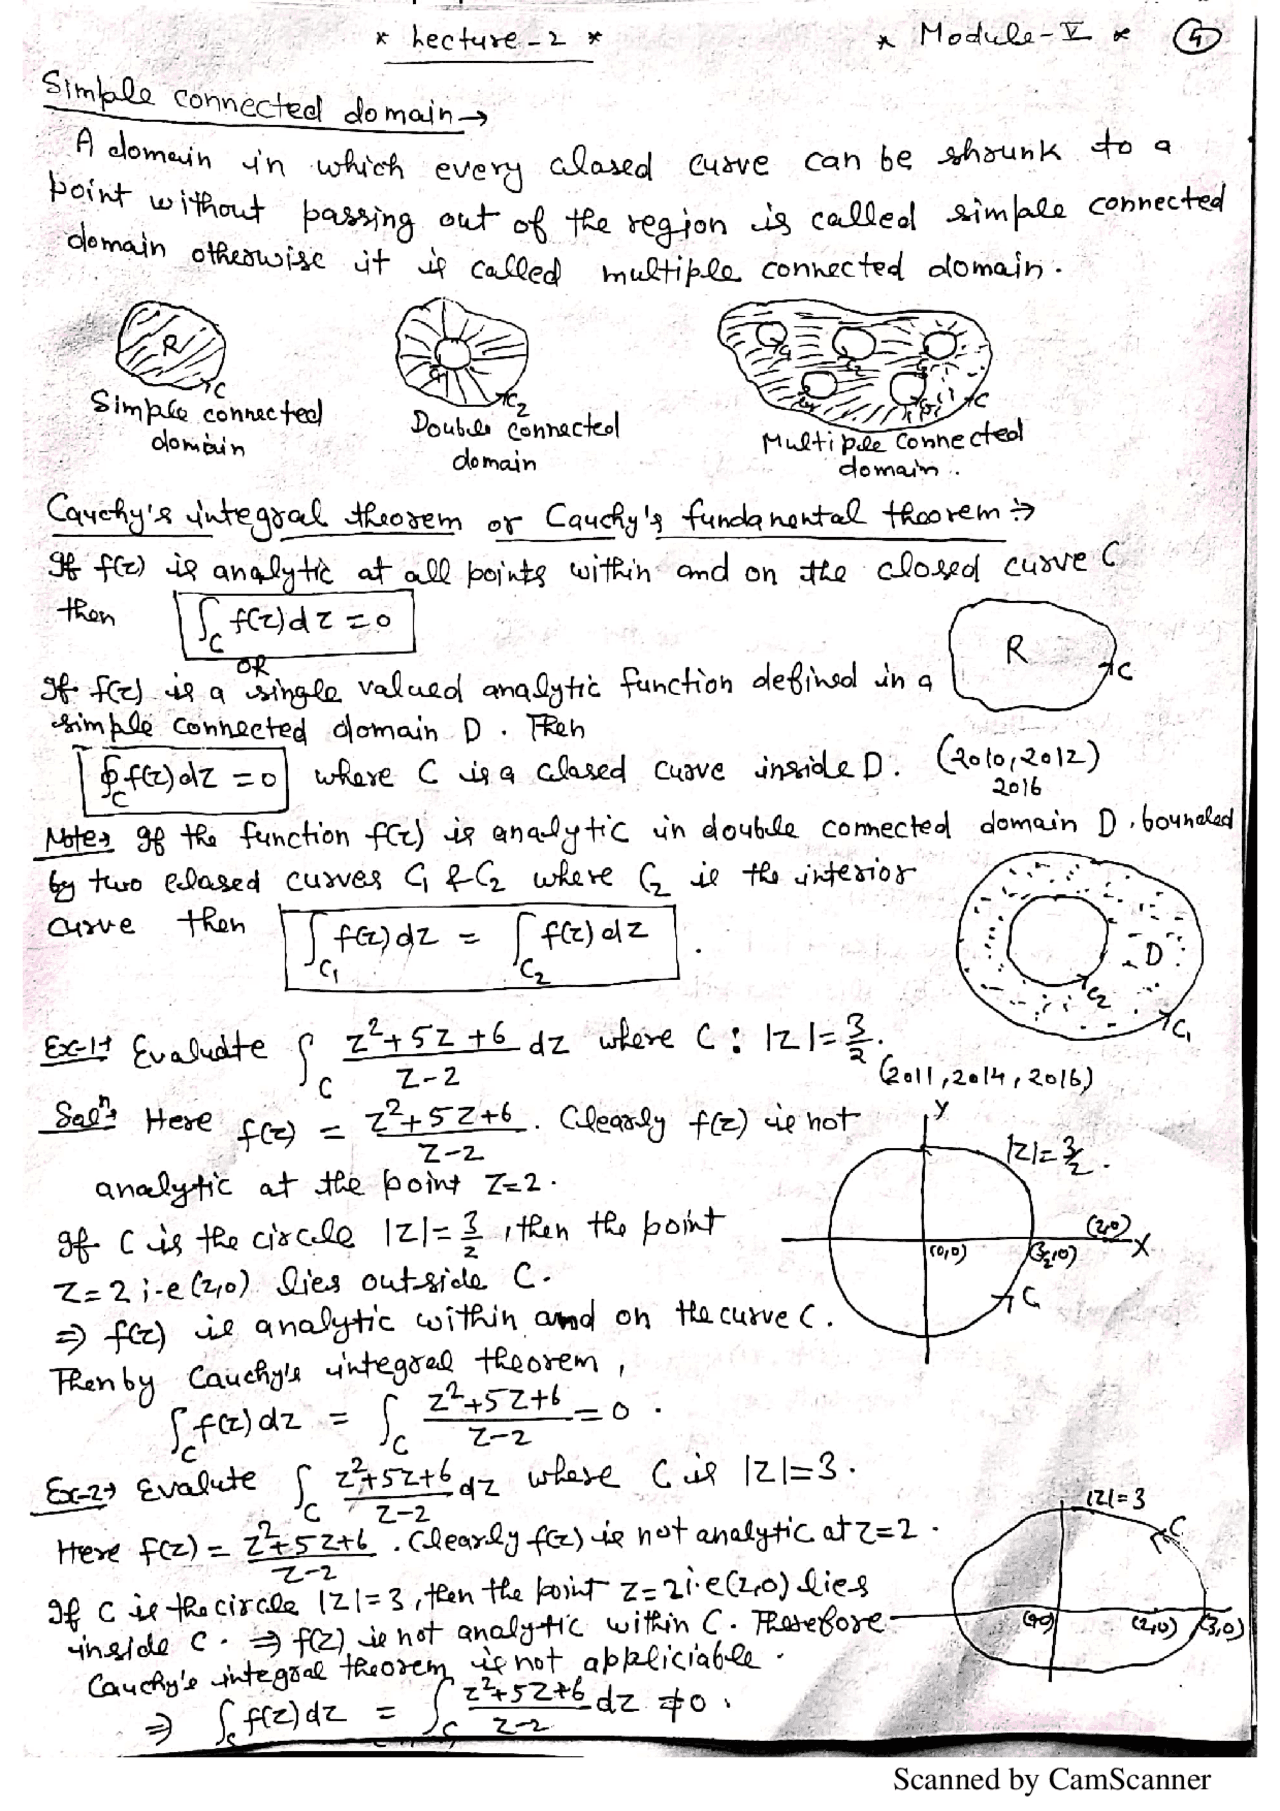 * Lecture-2 *
* Module-V *
Simple connected domain→
A domain in which every closed curve can be shrunk to a
point without passing out of the region is called simple connected
domain otherwise it is called multiple connected domain.
R
C
C2
C
Simple connected
domain
Double connected
domain
Multiple connected
domain..
Cauchy's integral theorem or Cauchy's fundamental theorem :→
If f(z) is analytic at all points within and on the closed curve C
then ∫_C f(z)dz = 0
R
C
OR
If f(z) is a single valued analytic function defined in a
simple connected domain D. Then
∮_C f(z)dz = 0 where C is a closed curve inside D. (2010, 2012)
2016
Note→ If the function f(z) is analytic in double connected domain D, bounded
by two closed curves C1 & C2 where C2 is the interior
curve then ∫_C1 f(z)dz = ∫_C2 f(z)dz .
D
C2
C1
Ex-1→ Evaluate ∫_C (z²+5z+6)/(z-2) dz where C : |z| = 3/2.
(2011, 2014, 2016)
Solⁿ→ Here f(z) = (z²+5z+6)/(z-2). Clearly f(z) is not
analytic at the point z=2.
Y
|z|=3/2.
(0,0) (3/2,0) (2,0) X
C
If C is the circle |z|=3/2, then the point
z=2 i.e (2,0) lies outside C.
⇒ f(z) is analytic within and on the curve C.
Then by Cauchy's integral theorem,
∫_C f(z)dz = ∫_C (z²+5z+6)/(z-2) = 0 .
Ex-2→ Evalute ∫_C (z²+5z+6)/(z-2) dz where C is |z|=3.
Here f(z) = (z²+5z+6)/(z-2). Clearly f(z) is not analytic at z=2.
|z|=3
C
(0,0) (2,0) (3,0)
If C is the circle |z|=3, then the point z=2 i.e (2,0) lies
inside C. ⇒ f(z) is not analytic within C. Therefore
Cauchy's integral theorem is not appliciable.
⇒ ∫_C f(z)dz = ∫_C (z²+5z+6)/(z-2) dz ≠ 0.
Scanned by CamScanner